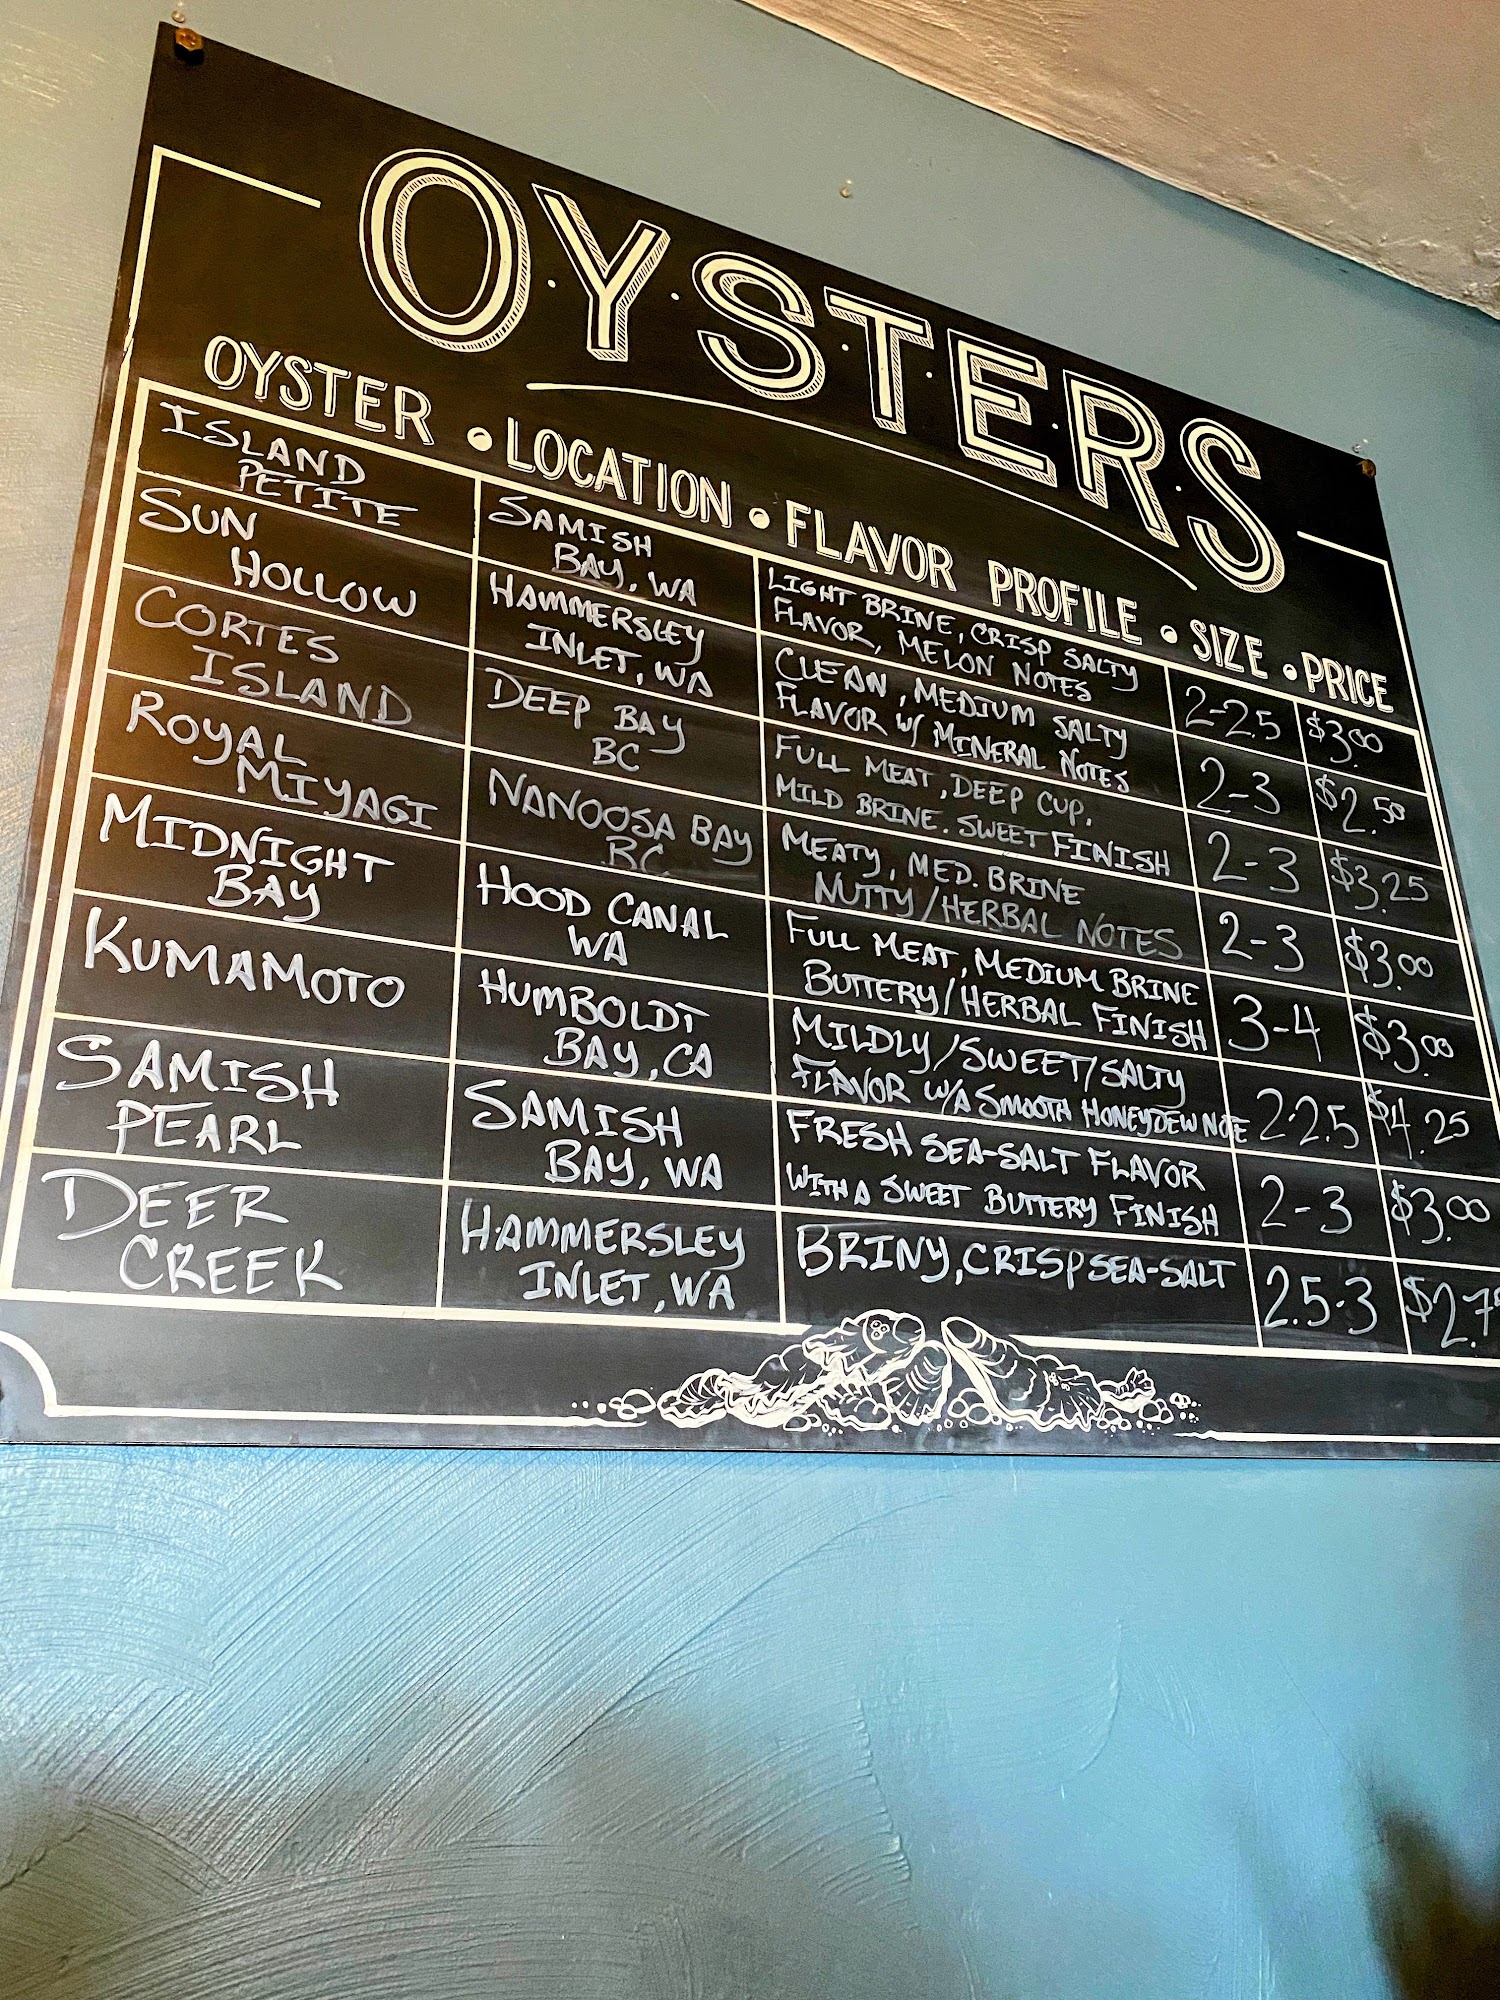 OYSTERS
OYSTER • LOCATION • FLAVOR PROFILE • SIZE • PRICE
ISLAND
PETITE
SAMISH
BAY, WA
LIGHT BRINE, CRISP SALTY
FLAVOR, MELON NOTES
2-2.5
$3.00
SUN
HOLLOW
HAMMERSLEY
INLET, WA
CLEAN, MEDIUM SALTY
FLAVOR W/ MINERAL NOTES
2-3
$2.50
CORTES
ISLAND
DEEP BAY
BC
FULL MEAT, DEEP CUP,
MILD BRINE. SWEET FINISH
2-3
$3.25
ROYAL
MIYAGI
NANOOSA BAY
BC
MEATY, MED. BRINE
NUTTY/HERBAL NOTES
2-3
$3.00
MIDNIGHT
BAY
HOOD CANAL
WA
FULL MEAT, MEDIUM BRINE
BUTTERY/HERBAL FINISH
3-4
$3.00
KUMAMOTO
HUMBOLDT
BAY, CA
MILDLY/SWEET/SALTY
FLAVOR W/A SMOOTH HONEYDEW NOTE
2-2.5
$4.25
SAMISH
PEARL
SAMISH
BAY, WA
FRESH SEA-SALT FLAVOR
WITH A SWEET BUTTERY FINISH
2-3
$3.00
DEER
CREEK
HAMMERSLEY
INLET, WA
BRINY, CRISP SEA-SALT
2.5-3